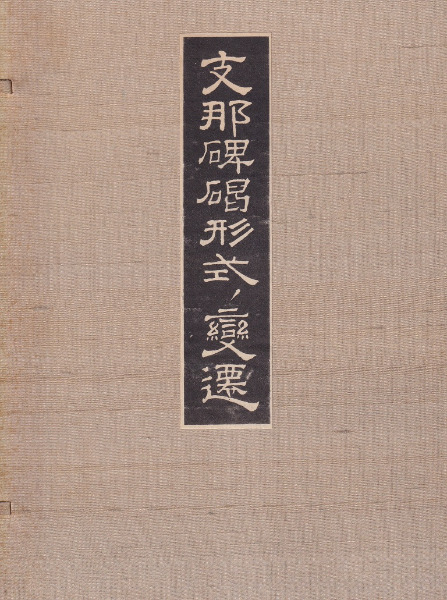 支那碑碣形式ノ變遷